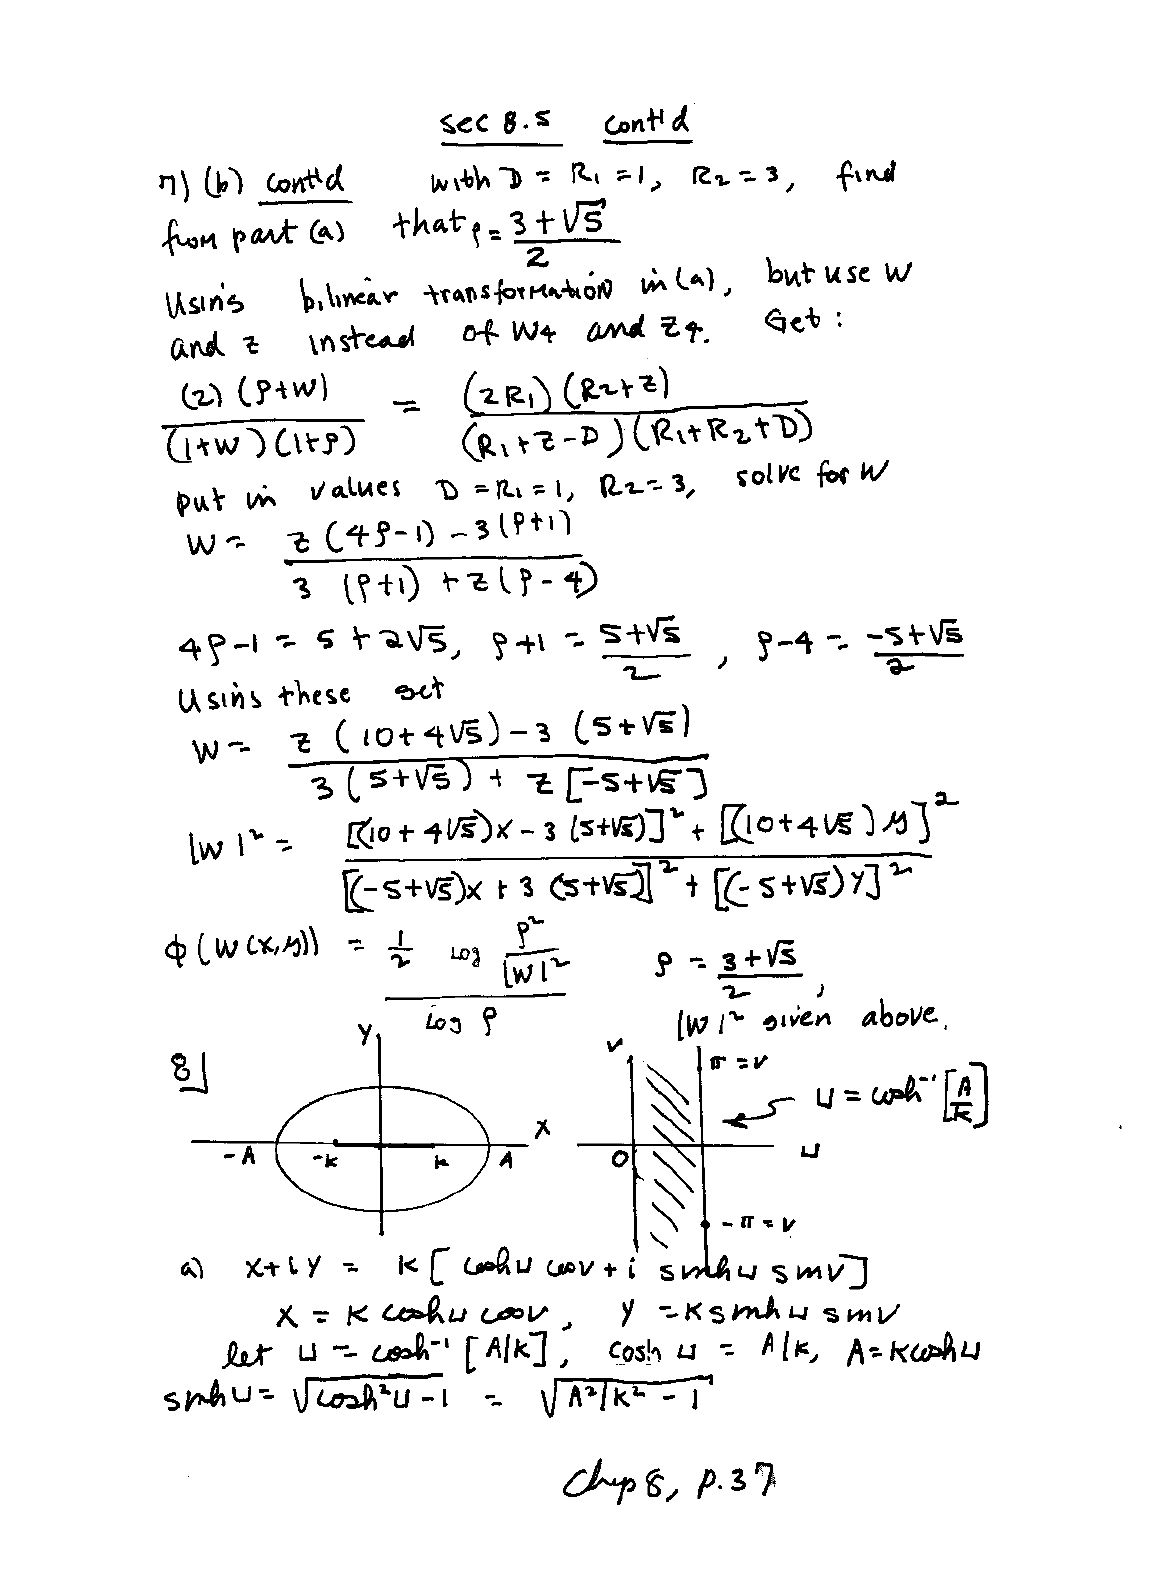 sec 8.5 cont'd
7) (b) cont'd with D = R₁ = 1, R₂ = 3, find
from part (a) that ρ = (3+√5)/2
Using bilinear transformation in (a), but use w
and z instead of w₄ and z₄. Get:
(2)(ρ+w)/((1+w)(1+ρ)) = (2R₁)(R₂+z)/((R₁+z-D)(R₁+R₂+D))
put in values D = R₁ = 1, R₂ = 3, solve for w
w = (z(4ρ-1) - 3(ρ+1))/(3(ρ+1) + z(ρ-4))
4ρ-1 = 5+2√5, ρ+1 = (5+√5)/2, ρ-4 = (-5+√5)/2
Using these get
w = (z(10+4√5) - 3(5+√5))/(3(5+√5) + z[-5+√5])
|w|² = ([(10+4√5)x - 3(5+√5)]² + [(10+4√5)y]²)/([(-5+√5)x + 3(5+√5)]² + [(-5+√5)y]²)
φ(w(x,y)) = (1/2 Log ρ²/|w|²)/(Log ρ) ρ = (3+√5)/2,
|w|² given above.
8]
y
x
-A -k k A
v
π = v
u = cosh⁻¹[A/k]
0
u
-π = v
a) x+iy = k[cosh u cos v + i sinh u sin v]
x = k cosh u cos v, y = k sinh u sin v
let u = cosh⁻¹[A/k], cosh u = A/k, A = k cosh u
sinh u = √(cosh²u - 1) = √(A²/k² - 1)
Chap 8, p.37